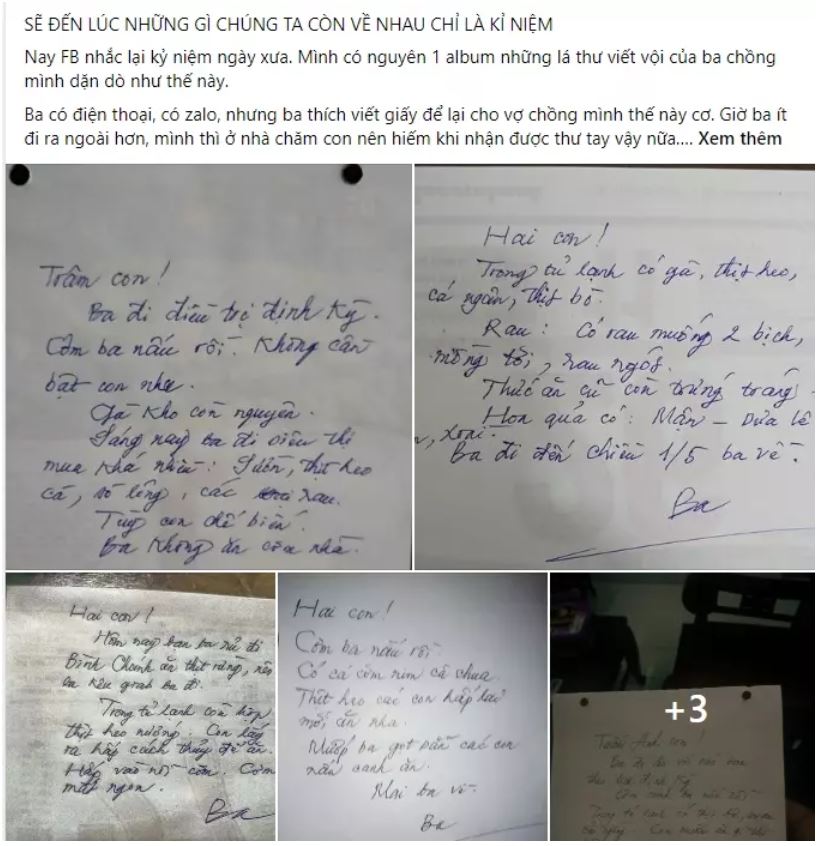 SẼ ĐẾN LÚC NHỮNG GÌ CHÚNG TA CÒN VỀ NHAU CHỈ LÀ KỈ NIỆM
Nay FB nhắc lại kỷ niệm ngày xưa. Mình có nguyên 1 album những lá thư viết vội của ba chồng
mình dặn dò như thế này.
Ba có điện thoại, có zalo, nhưng ba thích viết giấy để lại cho vợ chồng mình thế này cơ. Giờ ba ít
đi ra ngoài hơn, mình thì ở nhà chăm con nên hiếm khi nhận được thư tay vậy nữa.... Xem thêm
Trâm con!
Ba đi điều trị định kỳ.
Cơm ba nấu rồi. Không cần
bật con nha.
Gà kho còn nguyên.
Sáng nay ba đi siêu thị
mua khá nhiều: Sườn, thịt heo
cá, sò lông, các rau.
Tùy con chế biến.
Ba không ăn cơm nhà.
Hai con!
Trong tủ lạnh có gà, thịt heo,
cá ngân, thịt bò.
Rau: Có rau muống 2 bịch,
mồng tơi, rau ngót.
Thức ăn cũ còn trứng tráng
Hoa quả có: Mận - Dưa lê
, xoài.
Ba đi đến chiều 1/5 ba về.
Ba
Hai con!
Hôm nay bạn ba rủ đi
Bình Chánh ăn thịt rừng, nên
ba kêu grab ba đi.
Trong tủ lạnh còn hộp
thịt heo nướng. Con lấy
ra hấp cách thủy để ăn.
Hấp vào nồi cơm. Cơm
mất ngon.
Ba
Hai con!
Cơm ba nấu rồi.
Có cá cơm rim cà chua.
Thịt heo các con hấp lại
mới ăn nha.
Mướp ba gọt sẵn các con
nấu canh ăn.
Mai ba về.
Ba
+3
Tuấn Anh con!
Trong tủ lạnh có thịt